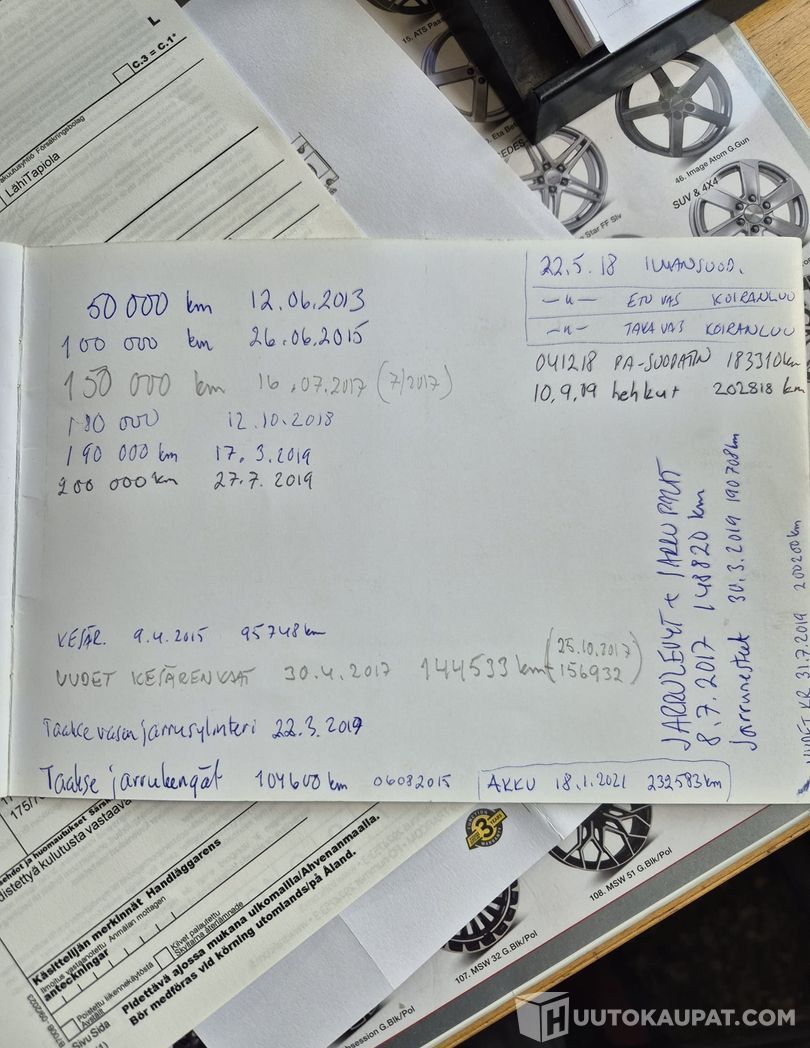 L
C.3 = C.1*
Försäkringsbolag
LähiTapiola
15. ATS
46. Image Atom G.Gun
SUV & 4X4
Star FF Slv
22.5.18 ILMANSUOD.
-"- ETU VAS KOIRANLUU
-"- TAKA VAS KOIRANLUU
041218 PA-SUODATIN 183310km
10.9.19 hehkut 202818 km
50 000 km 12.06.2013
100 000 km 26.06.2015
150 000 km 16.07.2017 (7/2017)
180 000 12.10.2018
190 000 km 17.3.2019
200 000 km 27.7.2019
JARRULEVYT + JARRUPALAT
8.7.2017 148820 km
Jarrunesteet 30.3.2019 190708km
UUDET KR 31.7.2019 200200km
KESÄR. 9.4.2015 95748km
UUDET KESÄRENKAAT 30.4.2017 144533 km (25.10.2017
156932)
Taakse vasen jarrusylinteri 22.3.2019
Taakse jarrukengät 104600 km 06082015
AKKU 18.1.2021 232583km
175/70
Käsittelijän merkinnät Handläggarens
anteckningar
Ilmoitus vastaanotettu Anmälan mottagen
Kilvet palautettu
Skyltarna återlämnade
Poistettu liikennekäytöstä
Avställt
Pidettävä ajossa mukana ulkomailla/Ahvenanmaalla.
Bör medföras vid körning utomlands/på Åland.
Sivu Sida
3 YEARS
108. MSW 51 G.Blk/Pol
107. MSW 32 G.Blk/Pol
G.Blk/Pol
HUUTOKAUPAT.COM